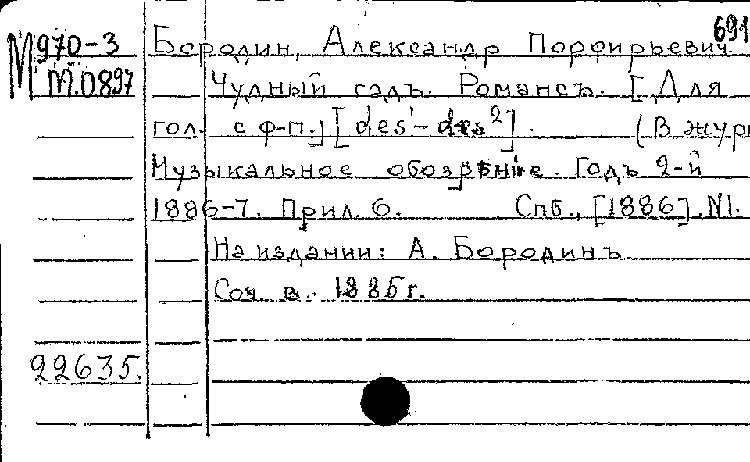 691
М 970-3 Бородин, Александр Порфирьевич
М.0897 Чудный садъ. Романсъ. [Для
гол. с ф-п.] [des¹- des²]. (В журн
Музыкальное обозрѣніе. Годъ 2-й
1886-7. Прил. 6. Спб., [1886]. №1.
На издании: А. Бородинъ
Соч. в. 1885 г.
22635.